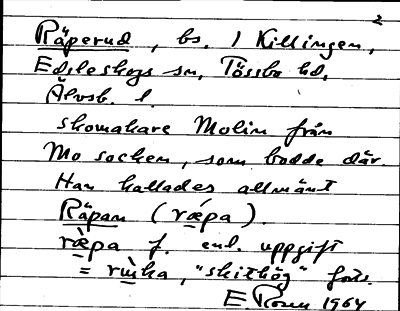 2
Räperud, bs. / Killingen,
Edsleskogs sn, Tössbo hd,
Älvsb. l.
skomakare Molin från
Mo socken, som bodde där.
Han kallades allmänt
Räpan (rǽpa).
ræ̀pa f. enl. uppgift
= rùka, "skithög" forts.
E. Rosen 1964